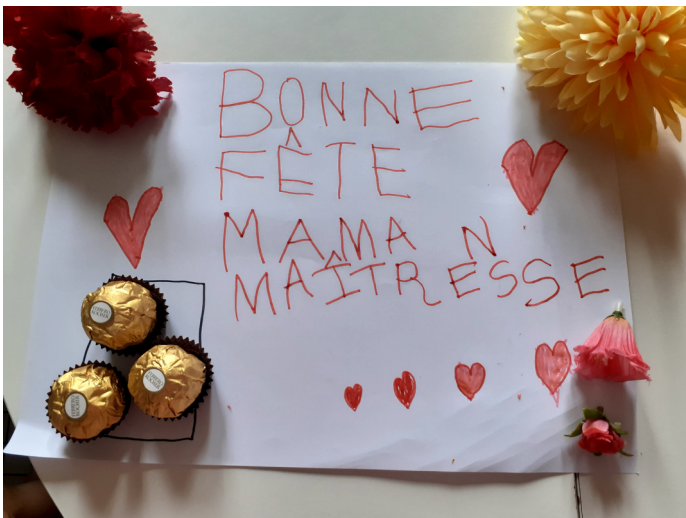 BONNE
FÊTE
MAMAN
MAÎTRESSE
FERRERO
ROCHER
FERRERO
ROCHER
FERRERO
ROCHER